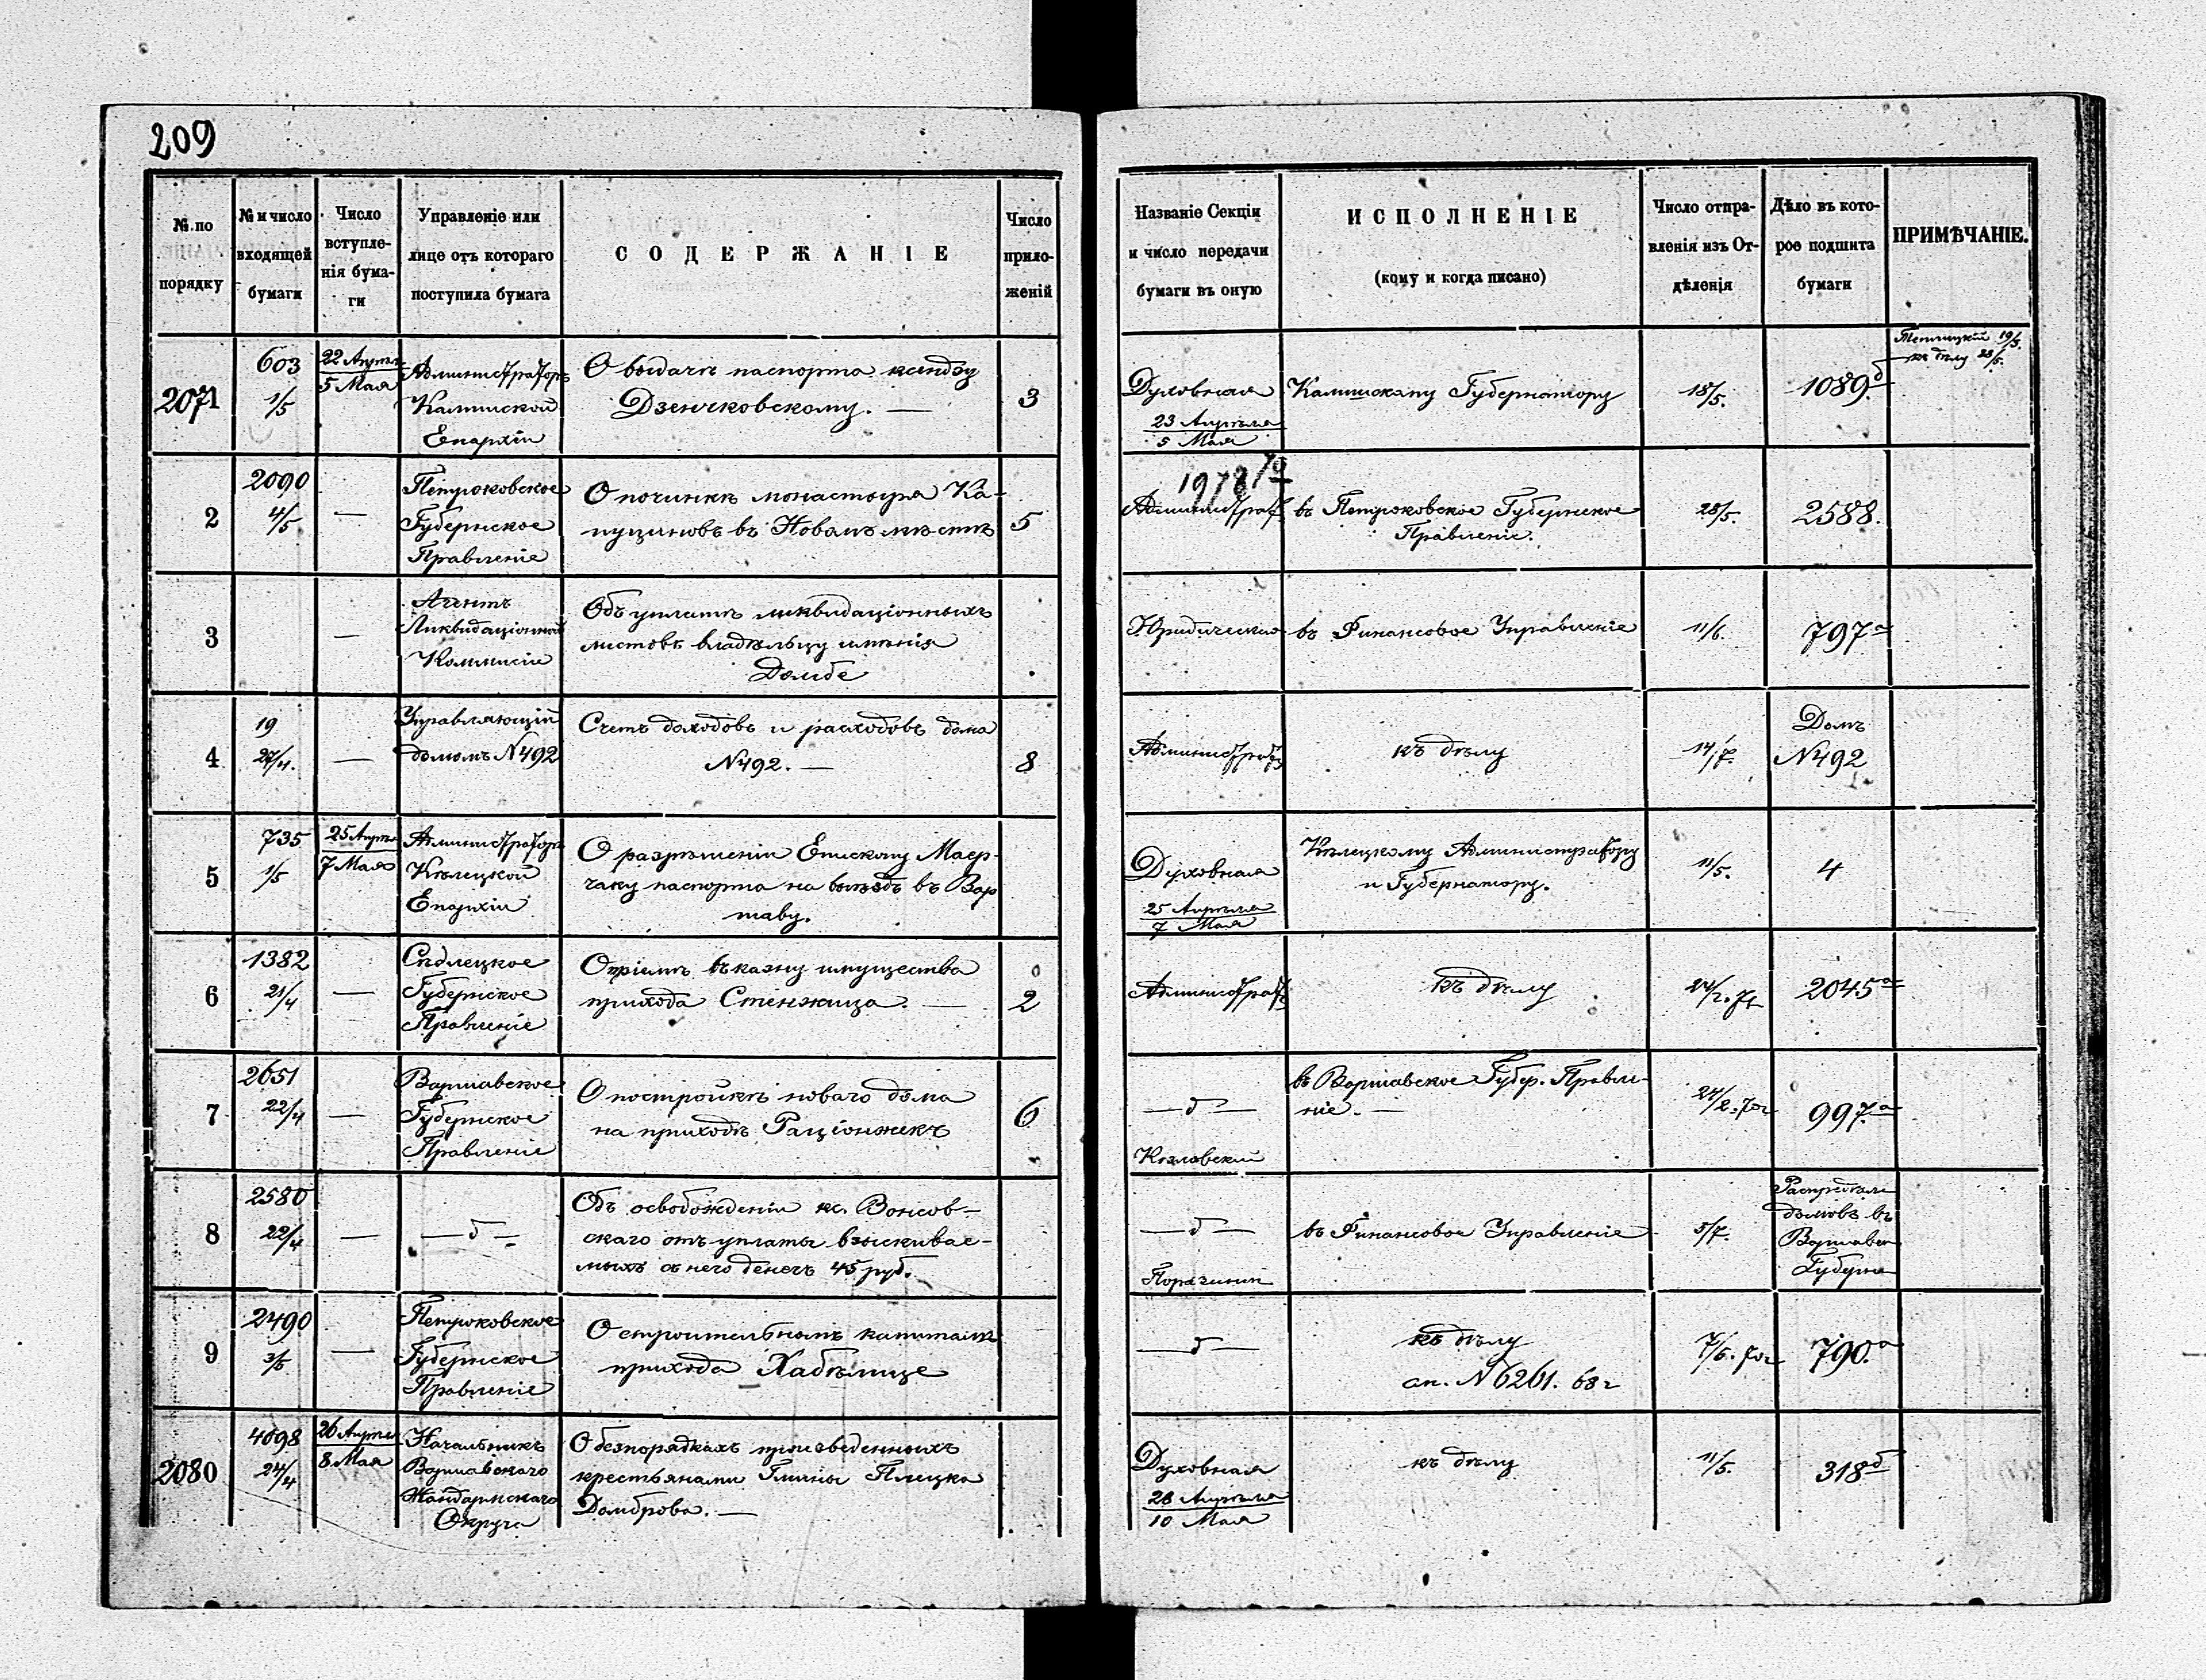 209
№ по порядку
№ и число входящей бумаги
Число вступле-
нія бума-
ги
Управленіе или
лице отъ котораго
поступила бумага
СОДЕРЖАНІЕ
Число
прило-
женій
Названіе Секціи
и число передачи
бумаги въ оную
ИСПОЛНЕНІЕ
(кому и когда писано)
Число отпра-
вленія изъ От-
дѣленія
Дѣло въ кото-
рое подшита
бумаги
ПРИМѢЧАНІЕ.
2071
603
1/5
22 Апрѣля
5 Мая
Администраторъ
Калишской
Епархіи
О выдачѣ паспорта ксендзу
Дзенчковскому. —
3
Духовная
23 Апрѣля
5 Мая
Калишскому Губернатору
18/5.
1089.б
19/5.
къ дѣлу 23/5.
2
2090
4/5
—
Петроковское
Губернское
Правленіе
О починкѣ монастыря Ка-
пуциновъ въ Новомъ мѣстѣ
5
1978/70
Администрат.
въ Петроковское Губернское
Правленіе.
28/5.
2588.
3
—
Агентъ
Ликвидаціонной
Коммисіи
Объ уплатѣ ликвидаціонныхъ
листовъ владѣльцу имѣнія
Домбе
Юридическая
въ Финансовое Управленіе
11/6.
797а
4
19
27/4.
—
Управляющій
домомъ N492
Счетъ доходовъ и расходовъ дома
N492. —
8
Администрат.
къ дѣлу
14/7.
Домъ
N492
5
735
1/5
25 Апрѣля
7 Мая
Администраторъ
Кѣлецкой
Епархіи
О разрѣшеніи Епископу Маер-
чаку паспорта на выѣздъ въ Вар
шаву.
Духовная
25 Апрѣля
7 Мая
Кѣлецкому Администратору
и Губернатору.
11/5.
4
6
1382
21/4
—
Сѣдлецкое
Губернское
Правленіе
О пріемѣ въ казну имущества
прихода Стенжица. —
2
Администрат.
къ дѣлу
24/2. 71
2045а
7
2651
22/4
—
Варшавское
Губернское
Правленіе
О постройкѣ новаго дома
на приходѣ Раціонжекъ
6
— д —
Козловскій
въ Варшавское Губер. Правле-
ніе. —
997.а
8
2580
22/4
—
— д —
Объ освобожденіи кс. Вонсов-
скаго отъ уплаты взыскивае-
мыхъ съ него денегъ 45 руб.
— д —
въ Финансовое Управленіе
5/7.
домовъ въ
Варшавск
Губерн
9
2490
3/5
—
Петроковское
Губернское
Правленіе
О строительномъ капиталѣ
прихода Хабѣлице
— д —
къ дѣлу
сп. N 6261. 68 г
7/6. 70г
790.а
2080
4098
24/4
26 Апрѣля
8 Мая
Начальникъ
Варшавскаго
Жандармскаго
Округа
О безпорядкахъ произведенныхъ
крестьянами Гмины Плецка
Домброва. —
Духовная
28 Апрѣля
10 Мая
къ дѣлу
11/5.
318б